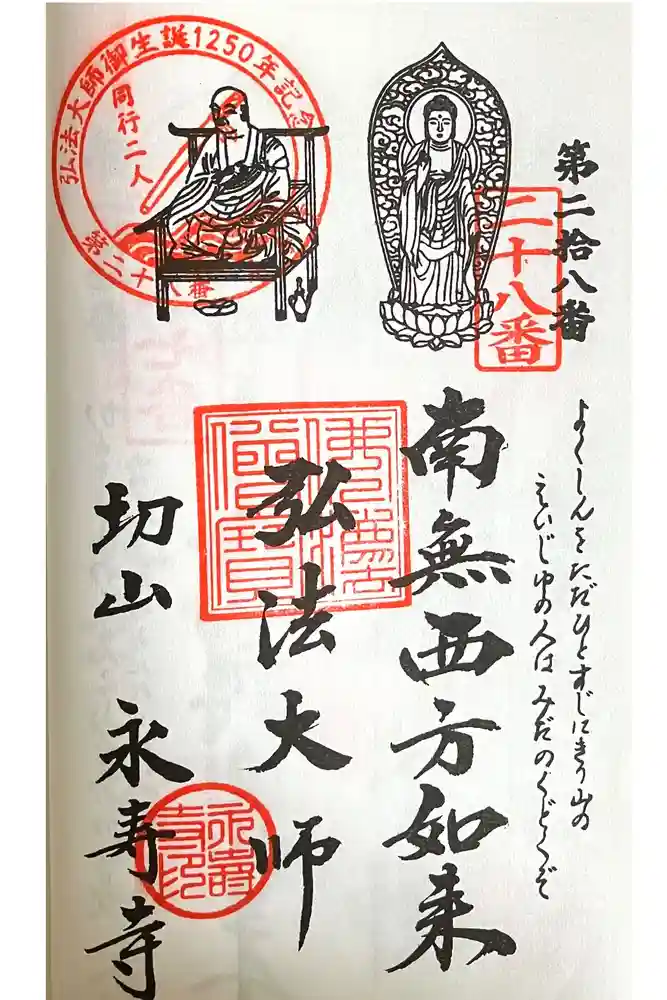 弘法大師御生誕1250年記念
同行二人
第二十八番
第二拾八番
二十八番
よくしんをただひとすじにきり山の
えいじゆの人はみだのくどくぞ
南無西方如来
弘法大師
切山 永寿寺
佛法僧寳
永壽寺印